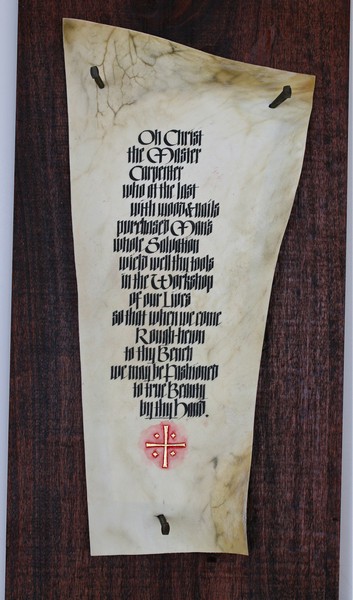 Oh Christ
the Master
Carpenter
who at the last
with wood & nails
purchased Mans
whole Salvation
wield well thy tools
in the Workshop
of our Lives
so that when we come
Rough-hewn
to thy Bench
we may be Fashioned
to true Beauty
by thy Hand.